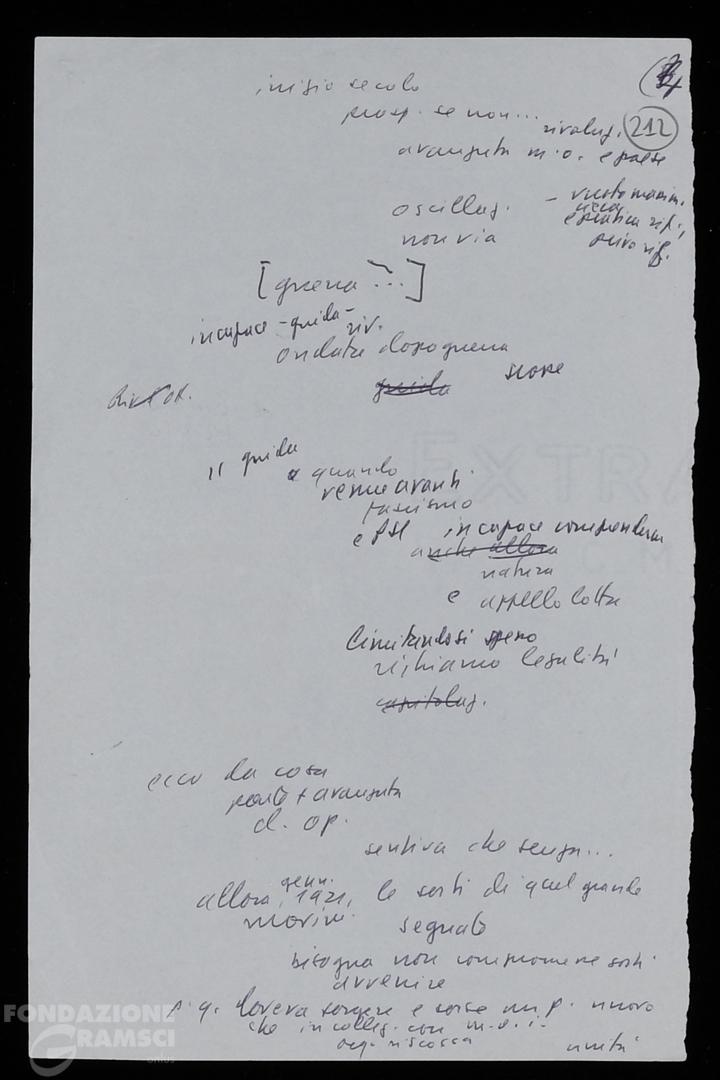 inizio secolo
prosp. se non... rivoluz. 212
avanzata m.o. e paese
oscillaz. - vuoto maxim.
e pratica rif.,
non via
[guerra ...]
incapace - guida - riv.
ondata dopoguerra
guida
Rivol.
il guida
e quando
venne avanti
fascismo
e PSI incapace comprendere
anche allora
natura
e appello lotta
limitandosi
richiamo legalità
capitolaz.
ecco da cosa
parte + avanzata
cl. op.
sentiva che senza...
allora, genn. 1921, le sorti di quel grande
movim. segnato
bisogna non compromettere sorti
avvenire
p. q. doveva sorgere e sorse un p. nuovo
che in colleg. con m. o. i.
org. riscossa unità
FONDAZIONE
GRAMSCI
onlus
EXTRA